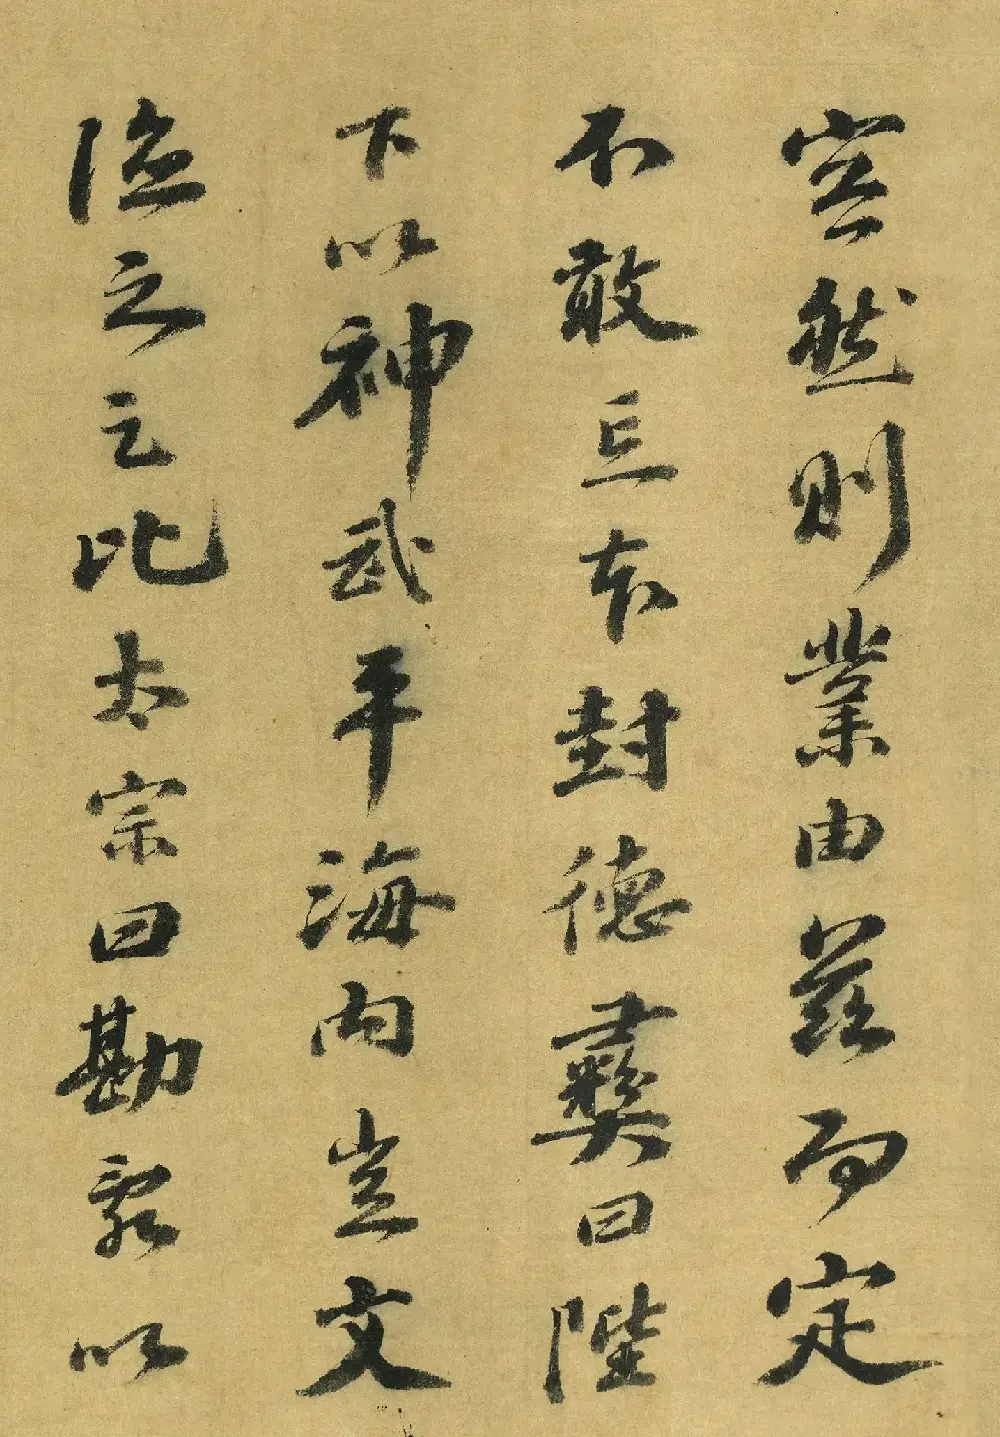 容然則業由茲而定
不敢忘本封德彝曰陛
下以神武平海內豈文
德之足比太宗曰勘亂以